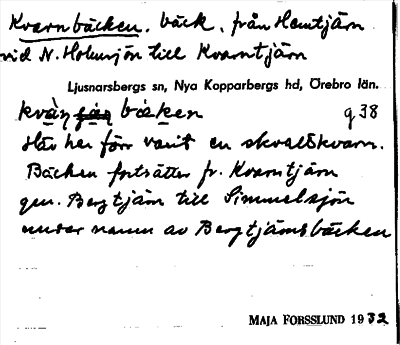 Kvarnbäcken. bäck, från Hemtjärn
vid N. Holmsjön till Kvarntjärn
Ljusnarsbergs sn, Nya Kopparbergs hd, Örebro län.
bäken g 38
Här har förr varit en skvaltkvarn.
Bäcken fortsätter fr. Kvarntjärn
gm. Bergtjärn till Simmelsjön
under namn av Bergtjärnsbäcken
MAJA FORSSLUND 1932